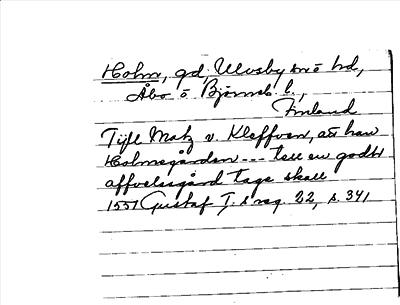 Holm, gd, Ulvsby sn o hd,
Åbo o Björneb. l.,
Finland
Tijll Matz v. Kleffven, att han
Holmsgården --- till en godh
affvelsgård taga skall
1551 Gustaf I:s reg. 22, s. 341